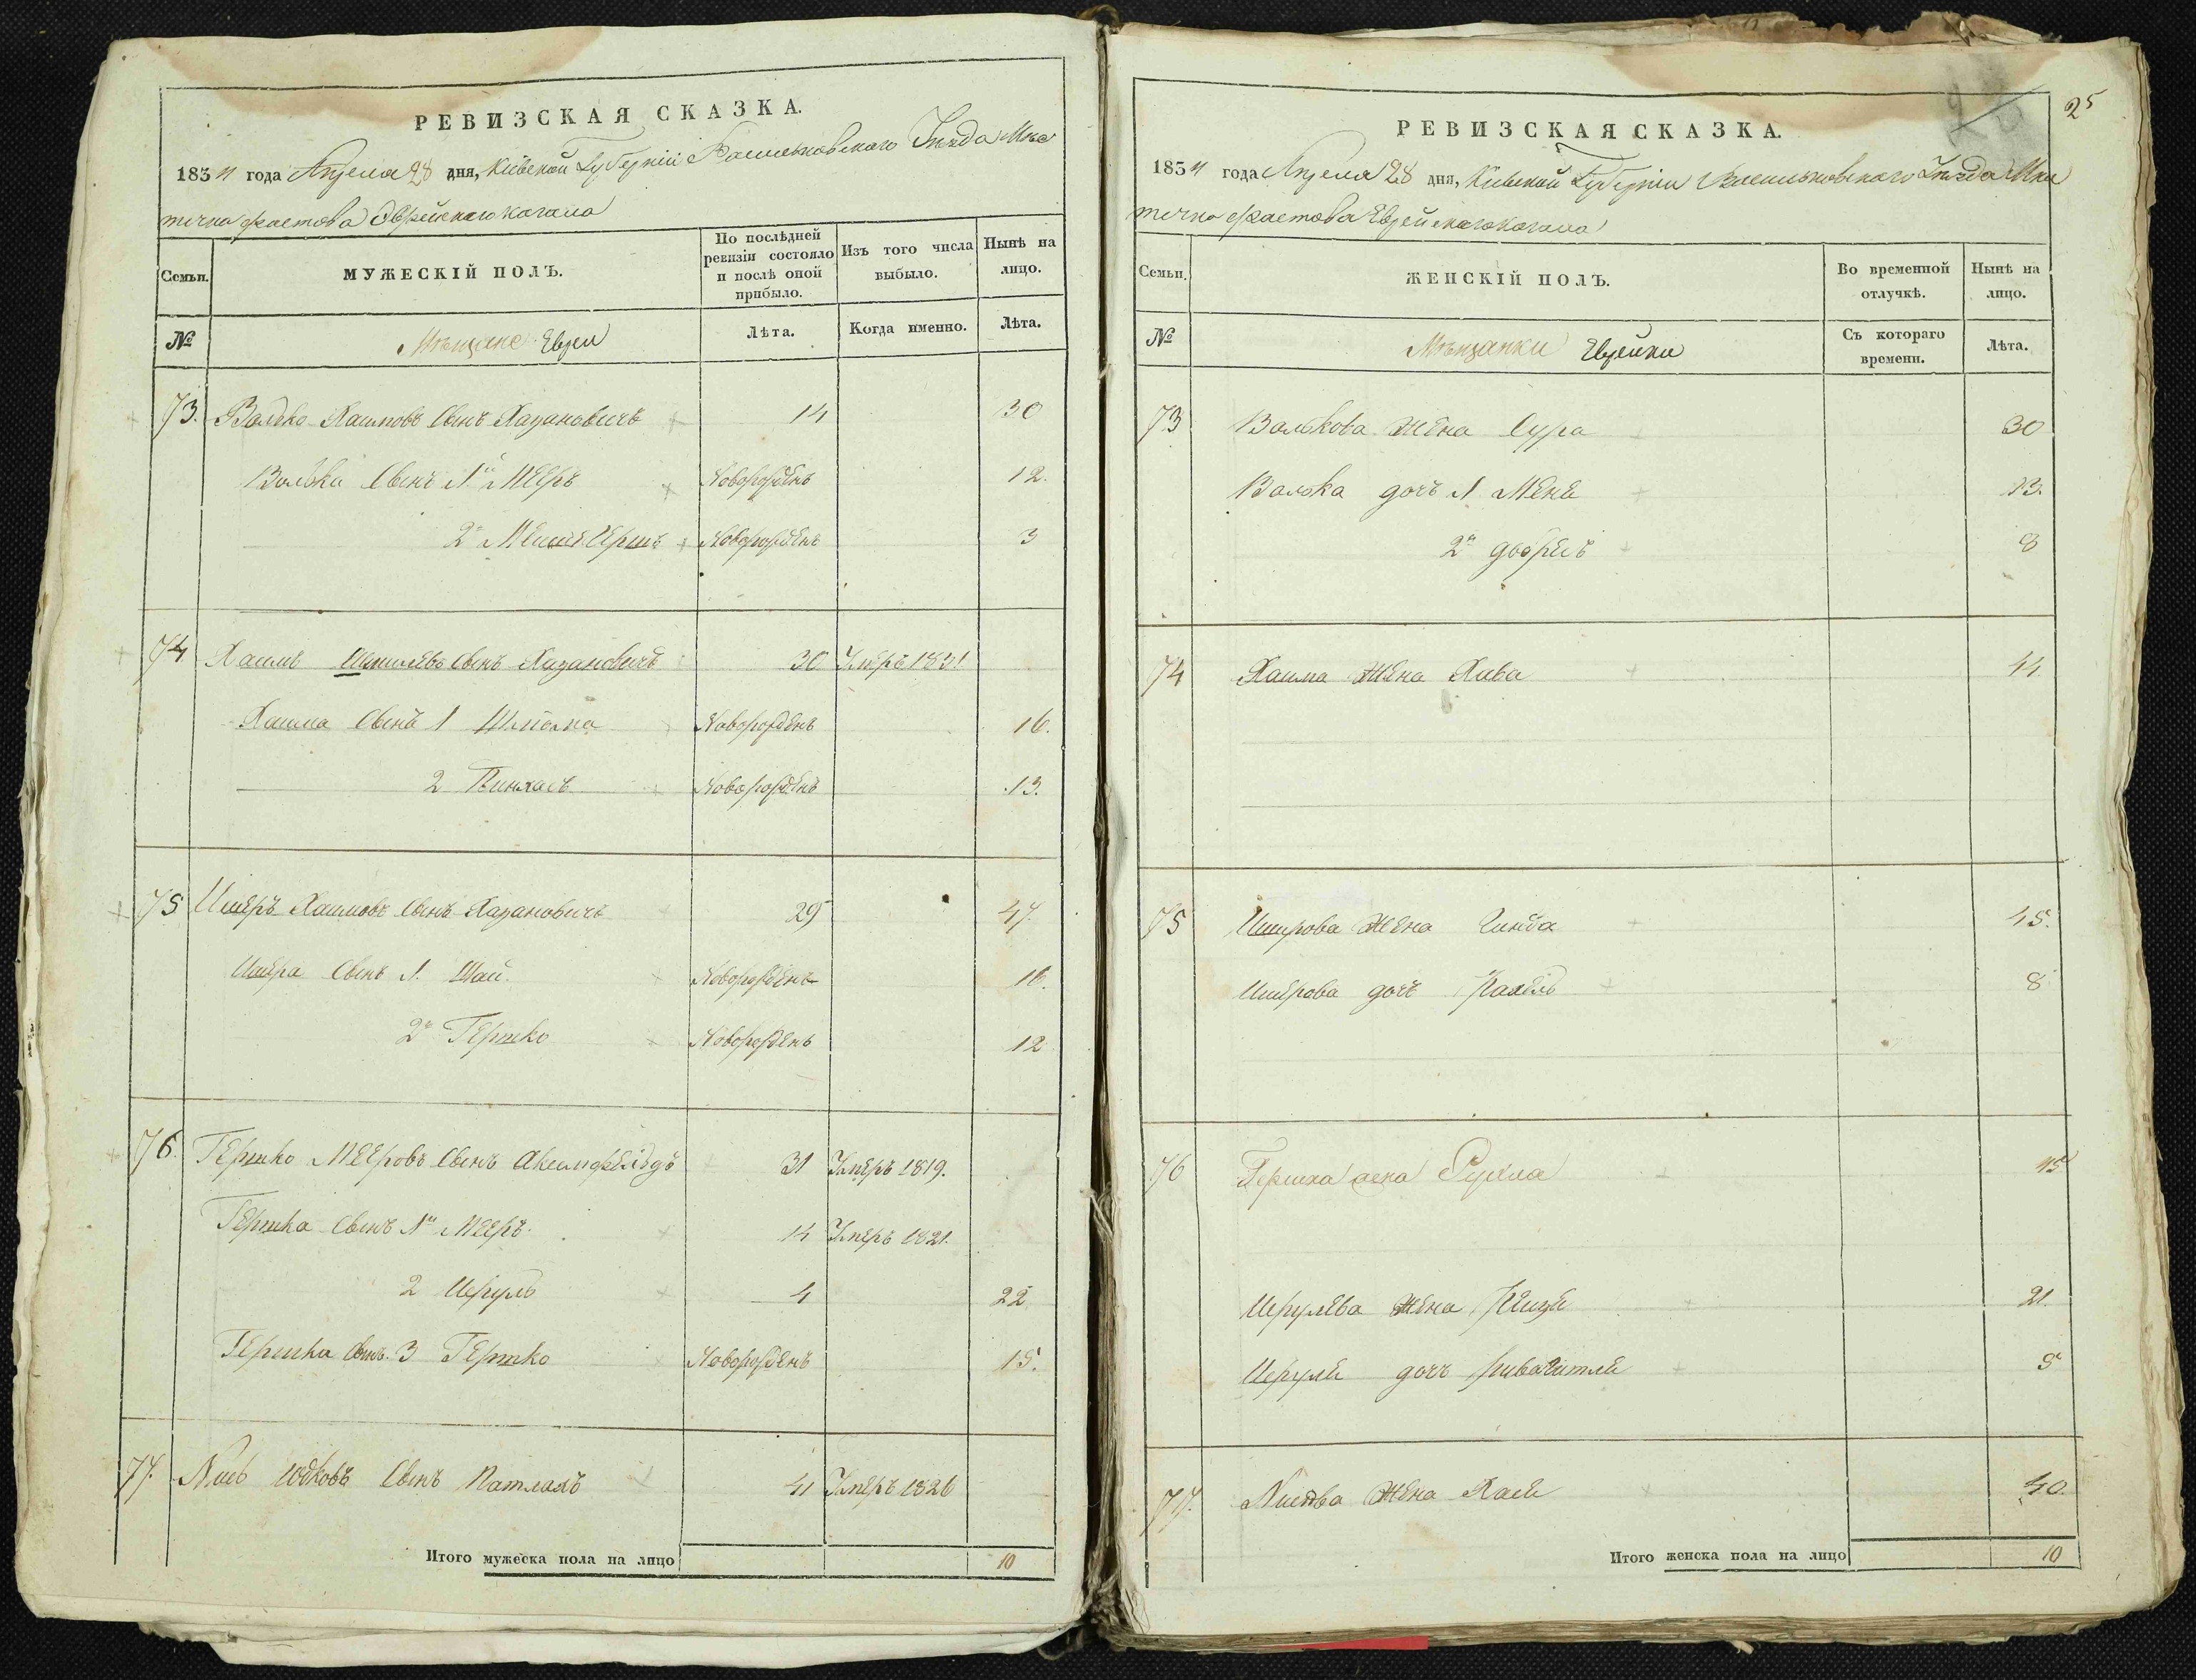 РЕВИЗСКАЯ СКАЗКА.
1834 года Апреля 28 дня, Кіевской Губерніи Васильковского Уѣзда Мѣс
течка Фастова Эврейского Кагала
Семьи.
МУЖЕСКІЙ ПОЛЪ.
По послѣдней ревизіи состояло и послѣ оной прибыло.
Изъ того числа выбыло.
Нынѣ на лицо.
№
Мѣщане Евреи
Лѣта.
Когда именно.
Лѣта.
73. Волько Хаимовъ Сынъ Хазановичъ 14 30
Волька Сынъ 1й Мееръ Новорожденъ 12.
2й Новорожденъ 3
74 Хаимъ Сынъ Хазановичъ 30 Умеръ 1831
Хаима Сынъ 1 Новорожденъ 16.
2 Пинхасъ Новорожденъ 13.
75 Ишеръ Хаимовъ Сынъ Хазановичъ 29 47.
Ишера Сынъ 1. Шай. Новорожденъ 16.
2й Гершко Новорожденъ 12
76. Гершко Мееровъ Сынъ 31 Умеръ 1819.
Гершка Сынъ 1й Мееръ. 14 Умеръ 1821.
2 Иеруль 4 22
Гершка Сынъ. 3 Гершко Новорожденъ 15.
77. Юдковъ Сынъ Патлахъ 41 Умеръ 1826
Итого мужеска пола на лицо 10
25
РЕВИЗСКАЯ СКАЗКА.
1834 года Апреля 28 дня, Кіевской Губерніи Васильковского Уѣзда Мѣс
течка Фастова Еврейского Кагала
Семьи.
ЖЕНСКІЙ ПОЛЪ.
Во временной отлучкѣ.
Нынѣ на лицо.
№
Мѣщанки Еврейки
Съ котораго времени.
Лѣта.
73 Волькова Жена Сура 30
Волька дочъ 1 Мене 13.
2я 8
74 Хаима Жена Хава 44
75 Ишерова Жена 45.
Ишерова дочъ Рахель 8
76 Гершка жена Рухла 45
Ерулева Жена 21.
Иеруля дочъ 5
77. Жена Хаея 40.
Итого женска пола на лицо 10